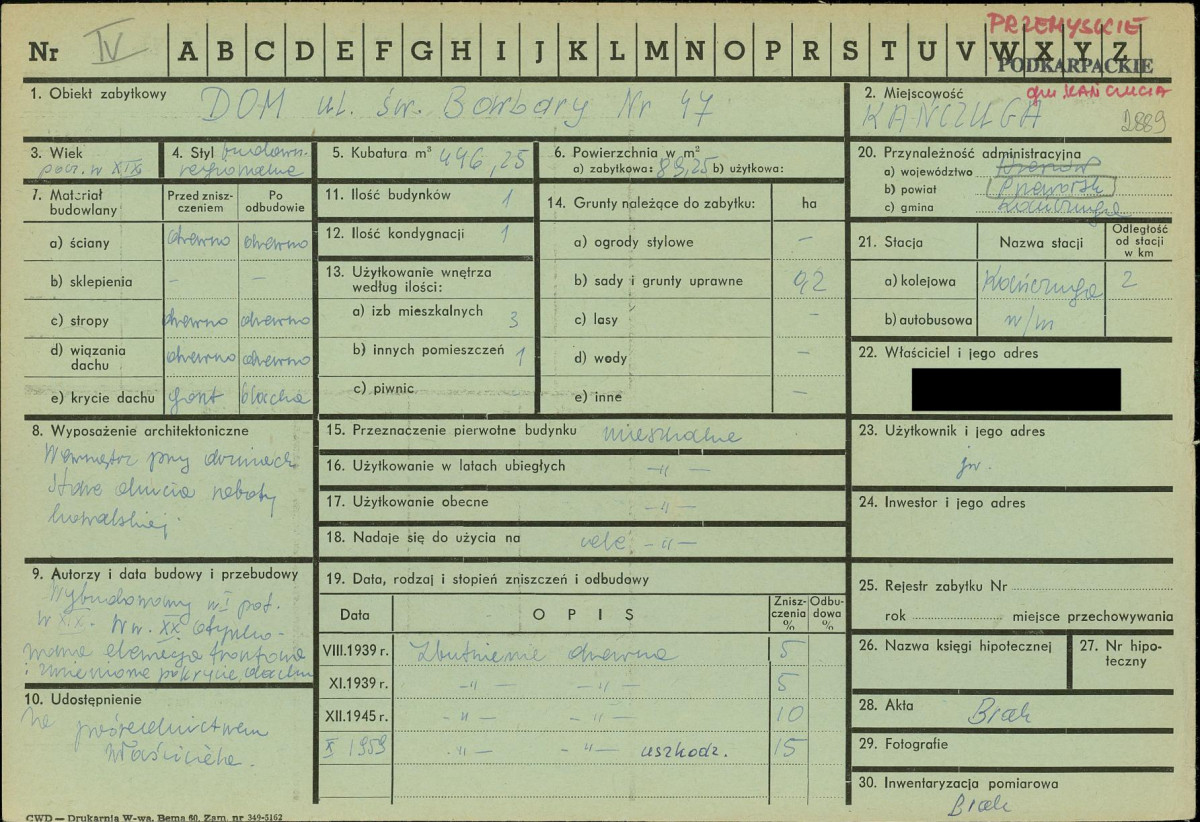 PRZEMYSKIE
Nr IV A B C D E F G H I J K L M N O P R S T U V W X Y Z
PODKARPACKIE
gm. KAŃCZUGA
1. Obiekt zabytkowy DOM ul. św. Barbary Nr 47
2. Miejscowość
KAŃCZUGA 2889
3. Wiek
pocz. w XIX
4. Styl budown.
regionalne
5. Kubatura m³ 446,25
6. Powierzchnia w m²
a) zabytkowa: 89,25 b) użytkowa:
20. Przynależność administracyjna
a) województwo
b) powiat Przeworsk
c) gmina Kańczuga
7. Materiał budowlany
Przed zniszczeniem
Po odbudowie
a) ściany drewno drewno
b) sklepienia – –
c) stropy drewno drewno
d) wiązania dachu drewno drewno
e) krycie dachu gont blacha
11. Ilość budynków 1
12. Ilość kondygnacji 1
13. Użytkowanie wnętrza
według ilości:
a) izb mieszkalnych 3
b) innych pomieszczeń 1
c) piwnic -
14. Grunty należące do zabytku: ha
a) ogrody stylowe –
b) sady i grunty uprawne 0,2
c) lasy –
d) wody –
e) inne –
21. Stacja Nazwa stacji
Odległość
od stacji
w km
a) kolejowa Kańczuga 2
b) autobusowa w/m
22. Właściciel i jego adres
8. Wyposażenie architektoniczne
Wewnątrz przy drzwiach
stare okucia roboty
kowalskiej.
15. Przeznaczenie pierwotne budynku mieszkalne
16. Użytkowanie w latach ubiegłych –„–
17. Użytkowanie obecne –„–
18. Nadaje się do użycia na cele –„–
23. Użytkownik i jego adres
jw.
24. Inwestor i jego adres
9. Autorzy i data budowy i przebudowy
Wybudowany w I poł.
w XIX. W w. XX otynko-
wana elewacja frontowa
i zmienione pokrycie dachu
10. Udostępnienie
Za pośrednictwem
właściciela.
19. Data, rodzaj i stopień zniszczeń i odbudowy
Data OPIS
Zniszczenia %
Odbudowa %
VIII.1939 r. Zbutwienie drewna 5
XI.1939 r. –„– –„– 5
XII.1945 r. –„– –„– 10
X 1959 –„– –„– uszkodz. 15
25. Rejestr zabytku Nr
rok miejsce przechowywania
26. Nazwa księgi hipotecznej
27. Nr hipoteczny
28. Akta Brak
29. Fotografie
30. Inwentaryzacja pomiarowa
Brak
CWD — Drukarnia W-wa, Bema 60. Zam. nr 349-5162